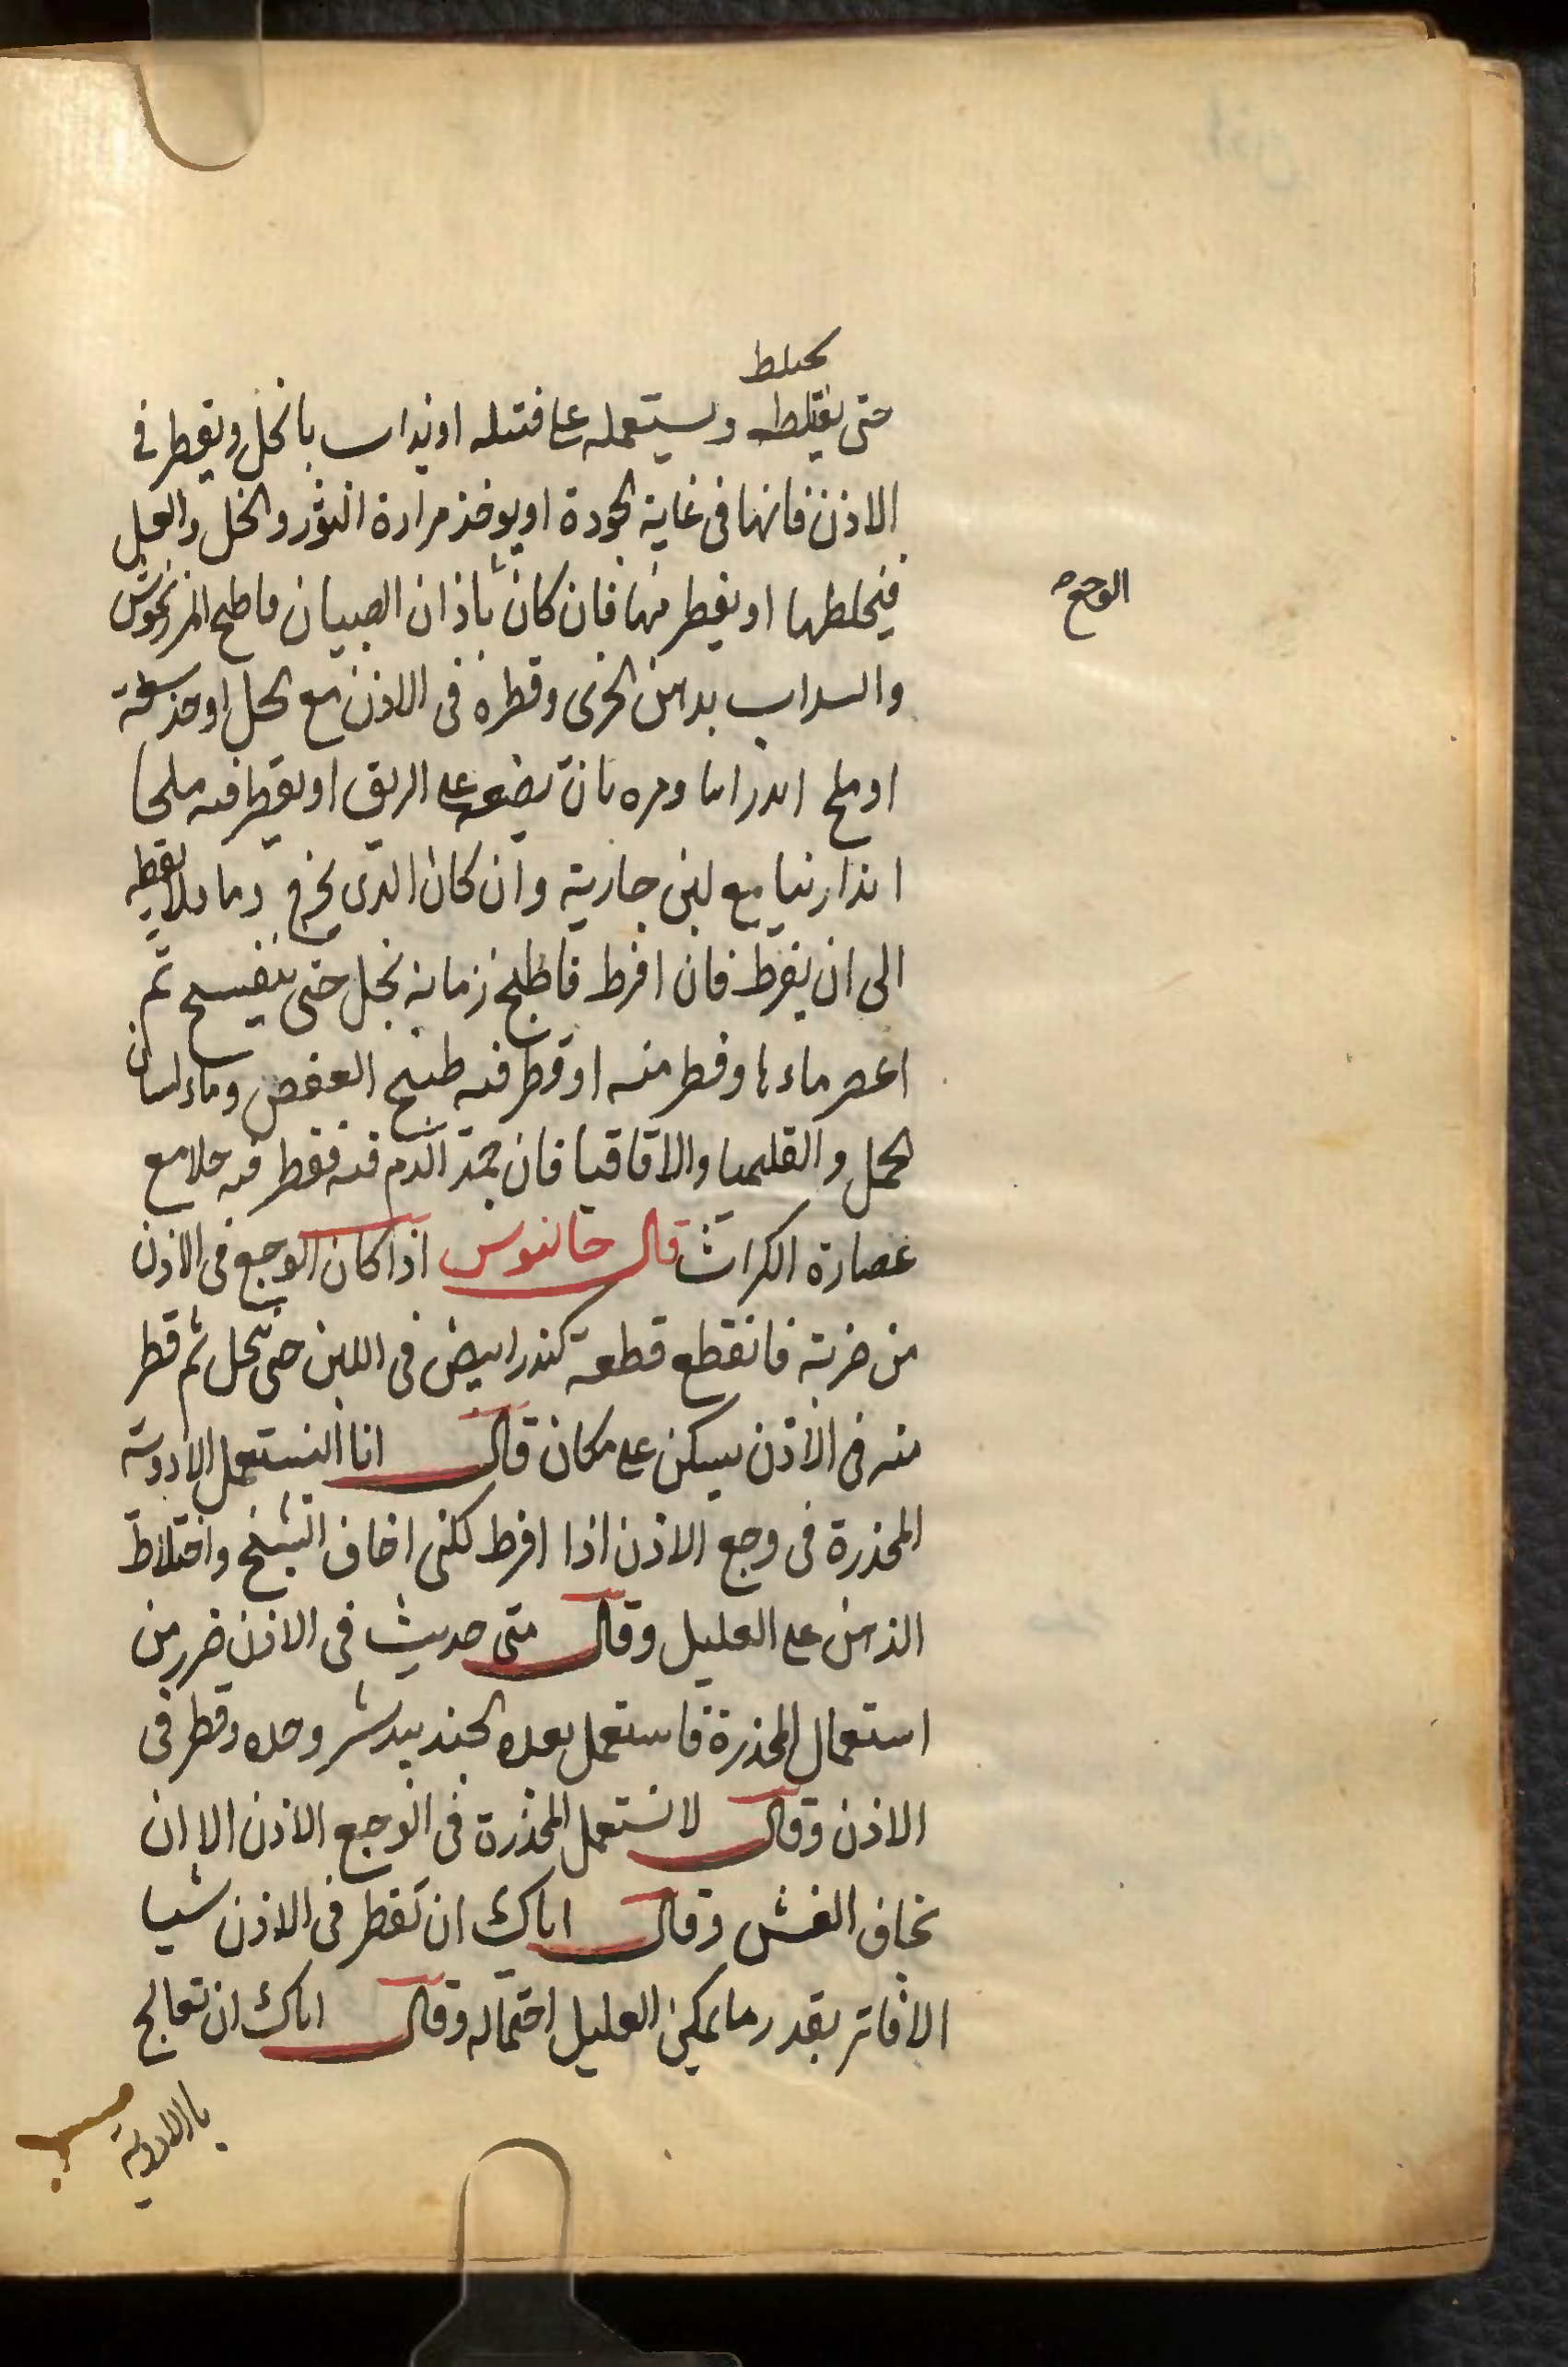 يختلط
حتى يغتلط ويستعمله على فتيله او يداب بالخل ويقطر في
الاذن فانها في غاية الجودة او يوخذ مرارة الثور والخل والعسل
فيخلطها او يقطر منها فان كان باذان الصبيان فاطبخ المرزنجوش
الوجع
والسداب بدهن الخرى وقطره في الاذن مع الخل او خذ
او ملح اندرانيا ومره بان يضعه على الريق او يقطر فيه ملحا
اندارنيا مع لبن جارية وان كان الذي يخرج دما فلا تقطعه
الى ان يفرط فان افرط فاطبخ زمانة بخل حتى يتفسح ثم
اعصر ماءها وقطر منه او قطر فيه طبيخ العفص وماء لسان
الحمل والقليميا والاقاقيا فان جمد الدم فيه فقطر فيه خلا مع
عصارة الكراث قال جالنوس اذا كان الوجع في الاذن
من ضربة فانقطع قطعة كندر ابيض في اللبن حتى ينحل ثم قطر
منه في الاذن يسكن على مكان قال انا انستعمل الادوية
المخدرة في وجع الاذن اذا افرط لكني اخاف التشنج واختلاط
الذهن على العليل وقال متى حديث في الاذن ضرر من
استعمال المخدرة فاستعمل بعده الجندبيدستر وحده وقطر في
الاذن وقال لا تستعمل المخدرة في الوجع الاذن الا ان
تخاف الغشى وقال اياك ان تقطر في الاذن شيا
الا فاتر بقدر ما يمكن العليل احتماله وقال اياك ان تعالج
بالادوية